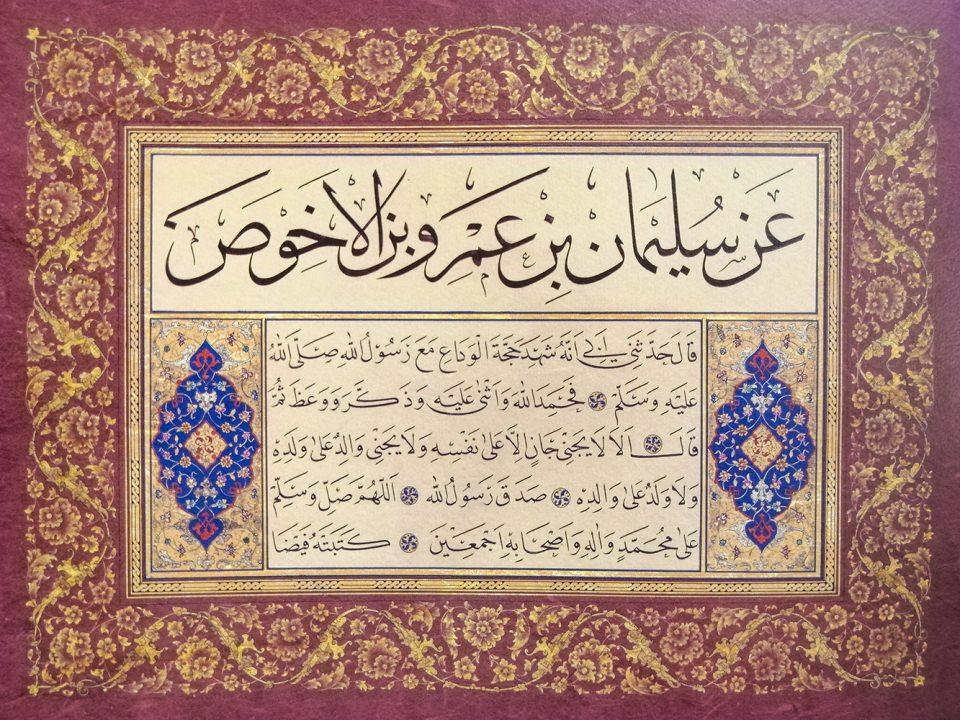 عَنْ سُلَيْمَانَ بْنِ عَمْرِو بْنِ الْاَحْوَصِ
قَالَ حَدَّثَنِى اَبِى اَنَّهُ شَهِدَ حَجَّةَ الْوَدَاعِ مَعَ رَسُوْلِ اللهِ صَلَّى اللهُ
عَلَيْهِ وَسَلَّمَ فَحَمِدَ اللهَ وَاَثْنٰى عَلَيْهِ وَذَكَّرَ وَوَعَظَ ثُمَّ
قَالَ اَلَا لَا يَجْنِىْ جَانٍ اِلَّا عَلٰى نَفْسِهِ وَلَا يَجْنِىْ وَالِدٌ عَلٰى وَلَدِهِ
وَلَا وَلَدٌ عَلٰى وَالِدِهِ صَدَقَ رَسُوْلُ اللهِ اَللّٰهُمَّ صَلِّ وَسَلِّمْ
عَلٰى مُحَمَّدٍ وَاٰلِهِ وَاَصْحَابِهِ اَجْمَعِيْنَ كَتَبَتْهُ